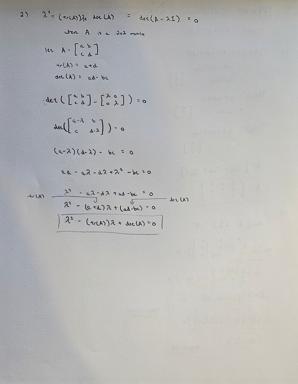 2) λ² - (tr(A))λ + det(A) = det(A - λI) = 0
when A is a 2x2 matrix
let A = [a b
c d]
tr(A) = a+d
det(A) = ad - bc
det([a b
c d] - [λ 0
0 λ]) = 0
det([a-λ b
c d-λ]) = 0
(a-λ)(d-λ) - bc = 0
ad - aλ - dλ + λ² - bc = 0
λ² - aλ - dλ + ad - bc = 0
tr(A) λ² - (a+d)λ + (ad-bc) = 0 det(A)
λ² - (tr(A))λ + det(A) = 0